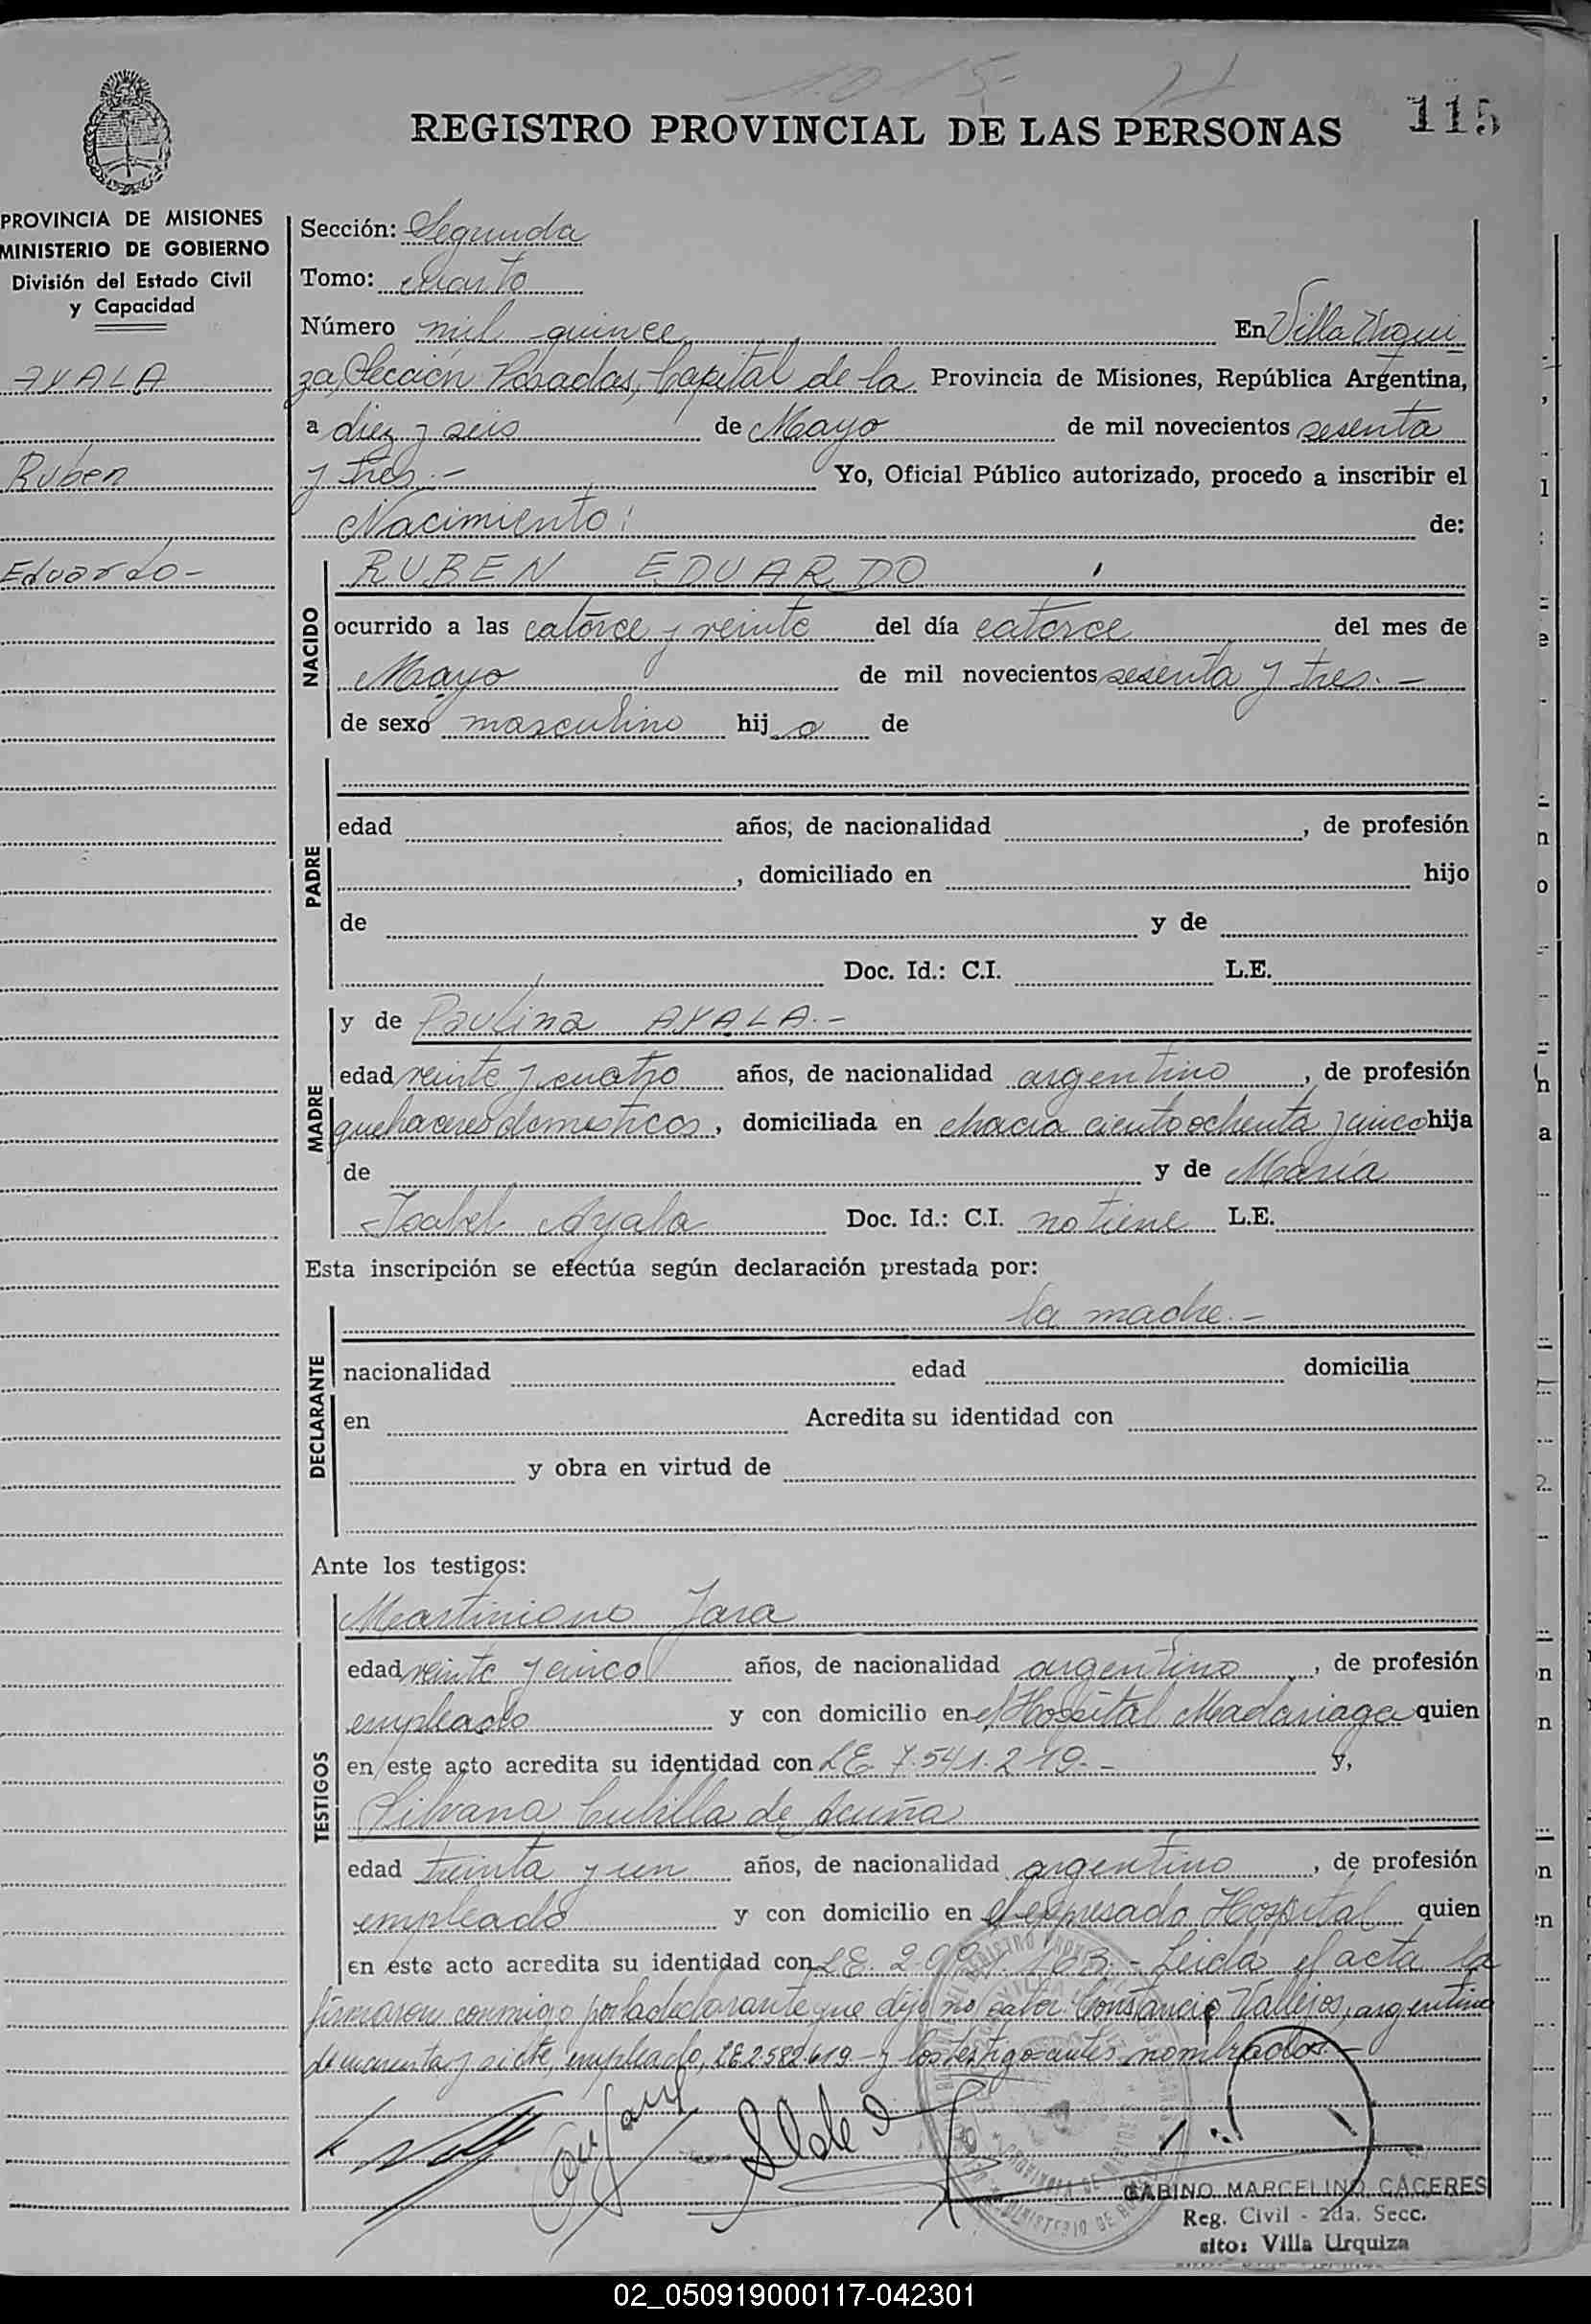 1015-
REGISTRO PROVINCIAL DE LAS PERSONAS
115
PROVINCIA DE MISIONES
MINISTERIO DE GOBIERNO
División del Estado Civil
y Capacidad
AYALA
Ruben
Eduardo-
Sección: Segunda
Tomo: cuarto
Número mil quince En Villa Urqui
za, Sección Posadas, Capital de la Provincia de Misiones, República Argentina,
a diez y seis de Mayo de mil novecientos sesenta
y tres.- Yo, Oficial Público autorizado, procedo a inscribir el
Nacimiento: de:
NACIDO
RUBEN EDUARDO
ocurrido a las catorce y veinte del día catorce del mes de
Mayo de mil novecientos sesenta y tres.-
de sexo masculino hijo de
PADRE
edad años, de nacionalidad , de profesión
, domiciliado en hijo
de y de
Doc. Id.: C.I. L.E.
MADRE
y de Paulina AYALA.-
edad veinte y cuatro años, de nacionalidad argentino, de profesión
quehaceres domesticos, domiciliada en chacra ciento ochenta y cinco hija
de y de María
Isabel Ayala Doc. Id.: C.I. no tiene L.E.
Esta inscripción se efectúa según declaración prestada por:
DECLARANTE
la madre.-
nacionalidad edad domicilia
en Acredita su identidad con
y obra en virtud de
Ante los testigos:
TESTIGOS
Martiniano Jara
edad veinte y cinco años, de nacionalidad argentino, de profesión
empleado y con domicilio en el Hospital Madariaga quien
en este acto acredita su identidad con LE 7.541.219.- y,
Silvana Cubilla de Acuña
edad treinta y un años, de nacionalidad argentino, de profesión
empleado y con domicilio en el expresado Hospital quien
en este acto acredita su identidad con LE. 163.- Leida el acta la
firmaron conmigo por la declarante que dijo no saber Constancio Vallejos, argentino
de cuarenta y siete, empleado, LE 2582619- y los testigos antes nombrados.-
GABINO MARCELINO CACERES
Reg. Civil - 2da. Secc.
sito: Villa Urquiza
02_050919000117-042301